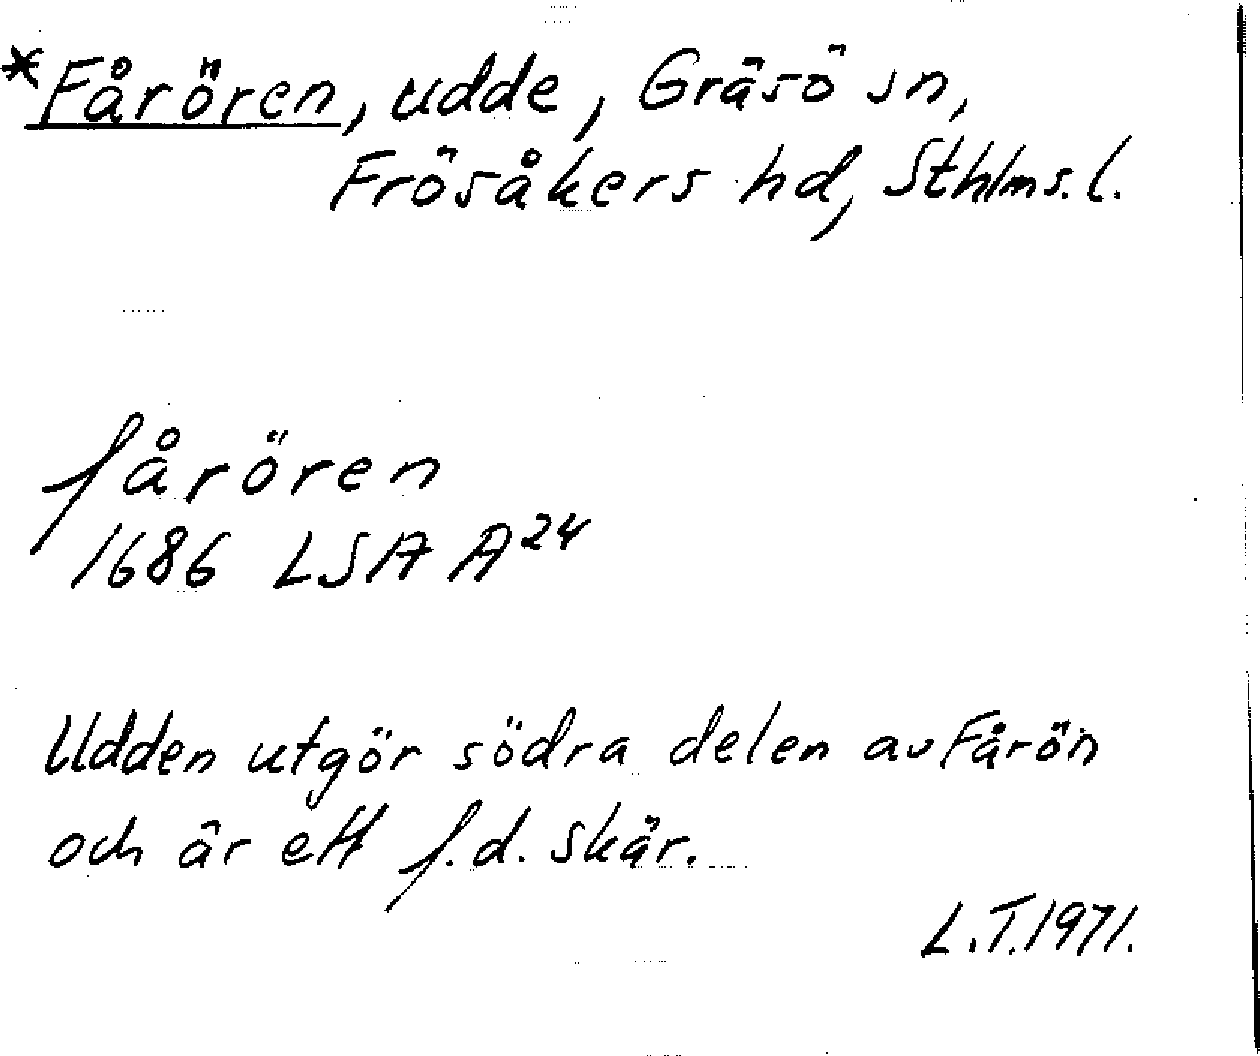 *Fårören, udde, Gräsö sn,
Frösåkers hd, Sthlms. l.
fårören
1686 LSA A24
Udden utgör södra delen av Fårön
och är ett f.d. skär.
L.T. 1971.